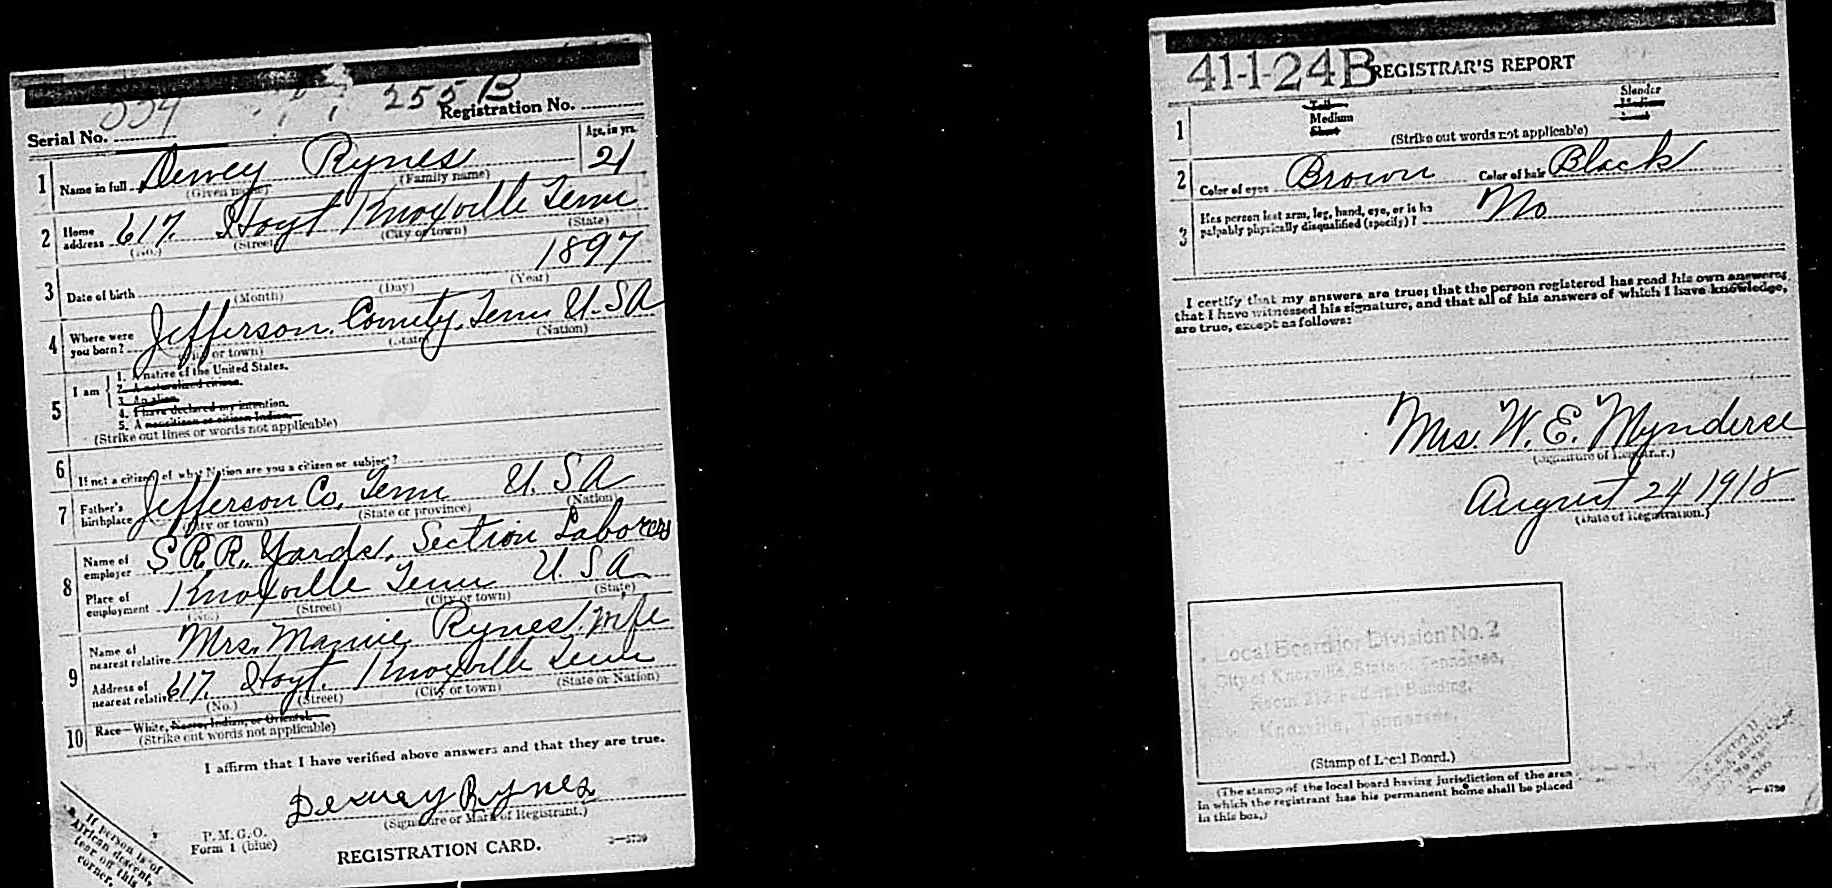 334
255 B
Serial No.
Registration No.
1 Name in full Dewey Rynes Age, in yrs. 21
(Given name) (Family name)
2 Home address 617. Hoyt Knoxville Tenn
(No.) (Street) (City or town) (State)
3 Date of birth 1897
(Month) (Day) (Year)
4 Where were you born? Jefferson. County. Tenn U.S.A
(City or town) (State) (Nation)
5 I am
1. A native of the United States.
2. A naturalized citizen.
3. An alien.
4. I have declared my intention.
5. A noncitizen or citizen Indian.
(Strike out lines or words not applicable)
6 If not a citizen, of what Nation are you a citizen or subject?
7 Father's birthplace Jefferson Co. Tenn U.S.A
(City or town) (State or province) (Nation)
8 Name of employer S.R.R. Yards. Section Laborers
Place of employment Knoxville Tenn U.S.A
(No.) (Street) (City or town) (State)
9 Name of nearest relative Mrs. Mamie Rynes. Wife
Address of nearest relative 617. Hoyt. Knoxville Tenn
(No.) (Street) (City or town) (State or Nation)
10 Race—White, Negro, Indian, or Oriental.
(Strike out words not applicable)
I affirm that I have verified above answers and that they are true.
Dewey Rynes
(Signature or Mark of Registrant.)
P. M. G. O.
Form 1 (blue)
REGISTRATION CARD.
3—5730
If person is of
African descent,
tear off this
corner.
41-1-24B REGISTRAR'S REPORT
1 Tall Medium Short
Slender Medium Stout
(Strike out words not applicable)
2 Color of eyes Brown Color of hair Black
3 Has person lost arm, leg, hand, eye, or is he
palpably physically disqualified (specify)? No
I certify that my answers are true; that the person registered has read his own answers;
that I have witnessed his signature, and that all of his answers of which I have knowledge,
are true, except as follows:
Mrs. W. E. Mynderse
(Signature of Registrar.)
August 24 1918
(Date of Registration.)
Local Board for Division No. 2
City of Knoxville, State of Tennessee,
Room 212 Federal Building,
Knoxville, Tennessee.
(Stamp of Local Board.)
(The stamp of the local board having jurisdiction of the area
in which the registrant has his permanent home shall be placed
in this box.)